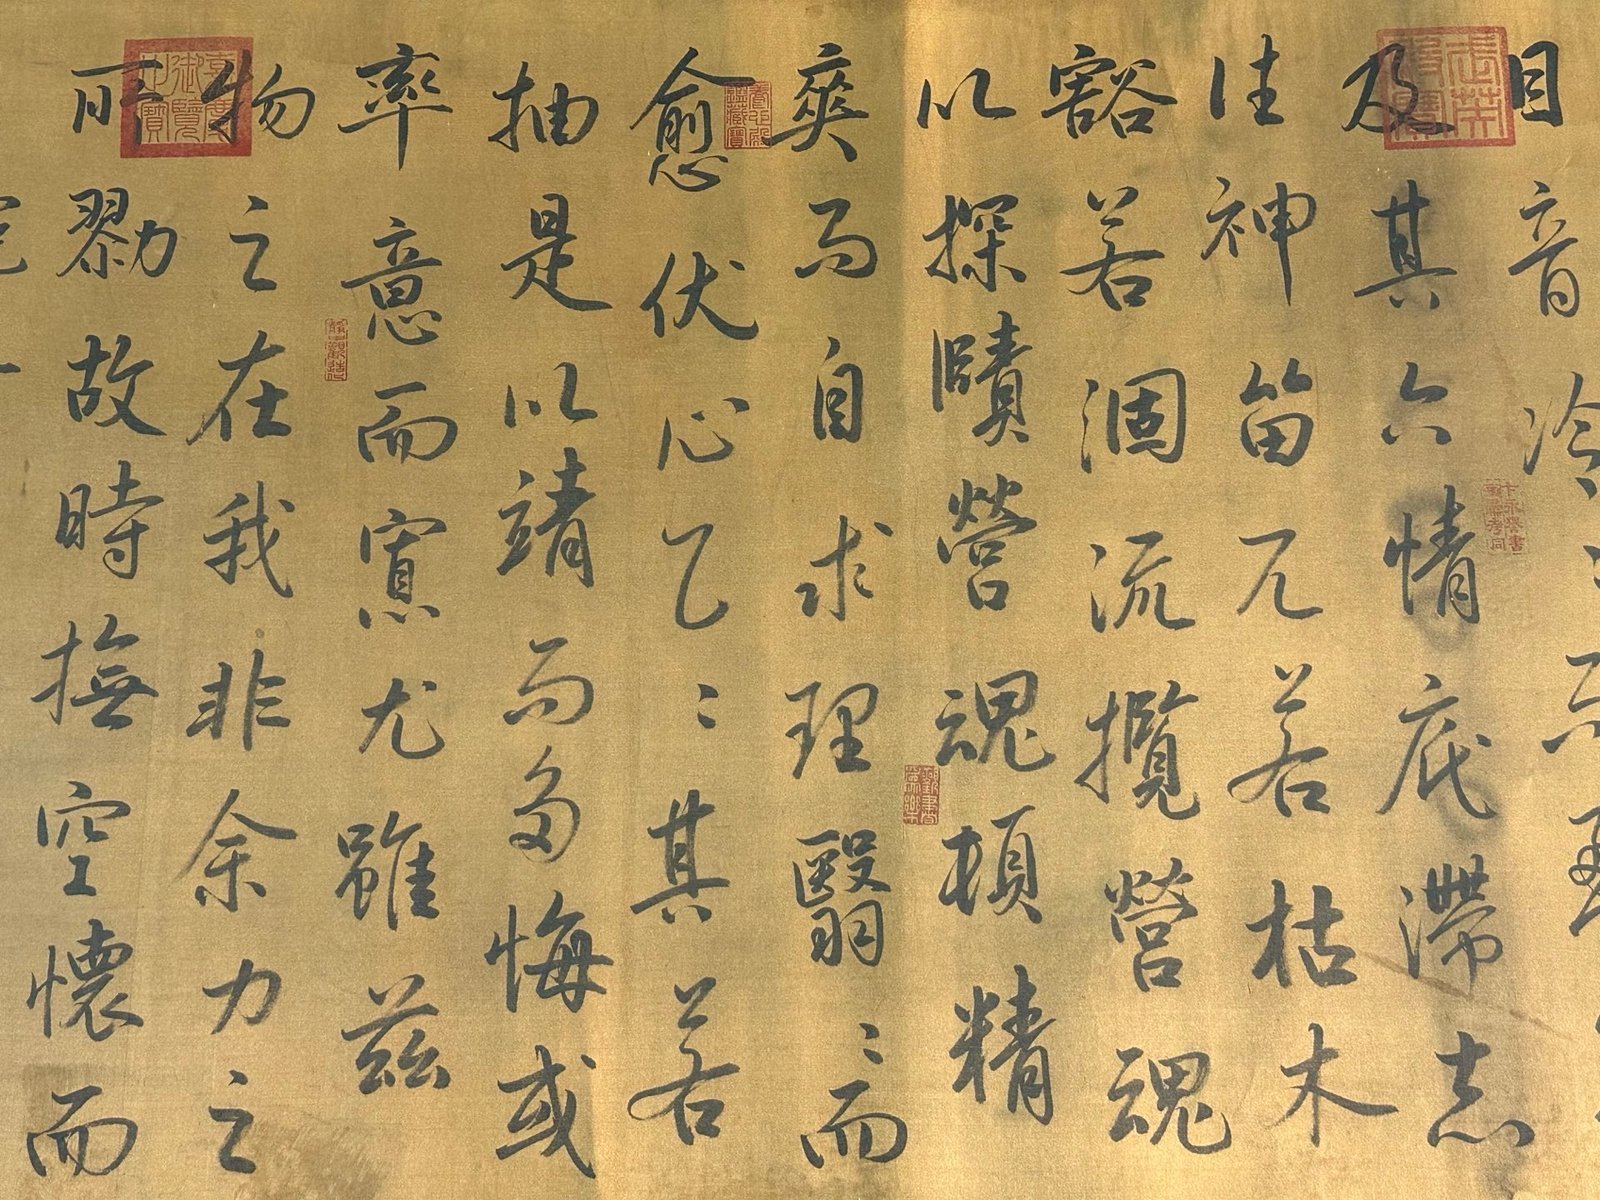 目音冷
及其六情底滯志
往神留兀若枯木
豁若涸流攬營魂
以探賾營魂頓精
爽而自求理翳々而
愈伏心乙々其若
抽是以靖而多悔或
率意而寡尤雖茲
物之在我非余力之
所勠故時撫空懷而